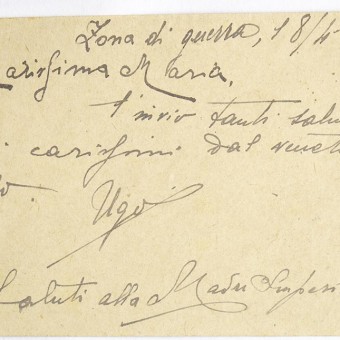 Zona di guerra, 18/4
Carissima Maria,
T'invio tanti salu
i carissimi dal venet
o. Ugo
Saluti alla Madre Superi